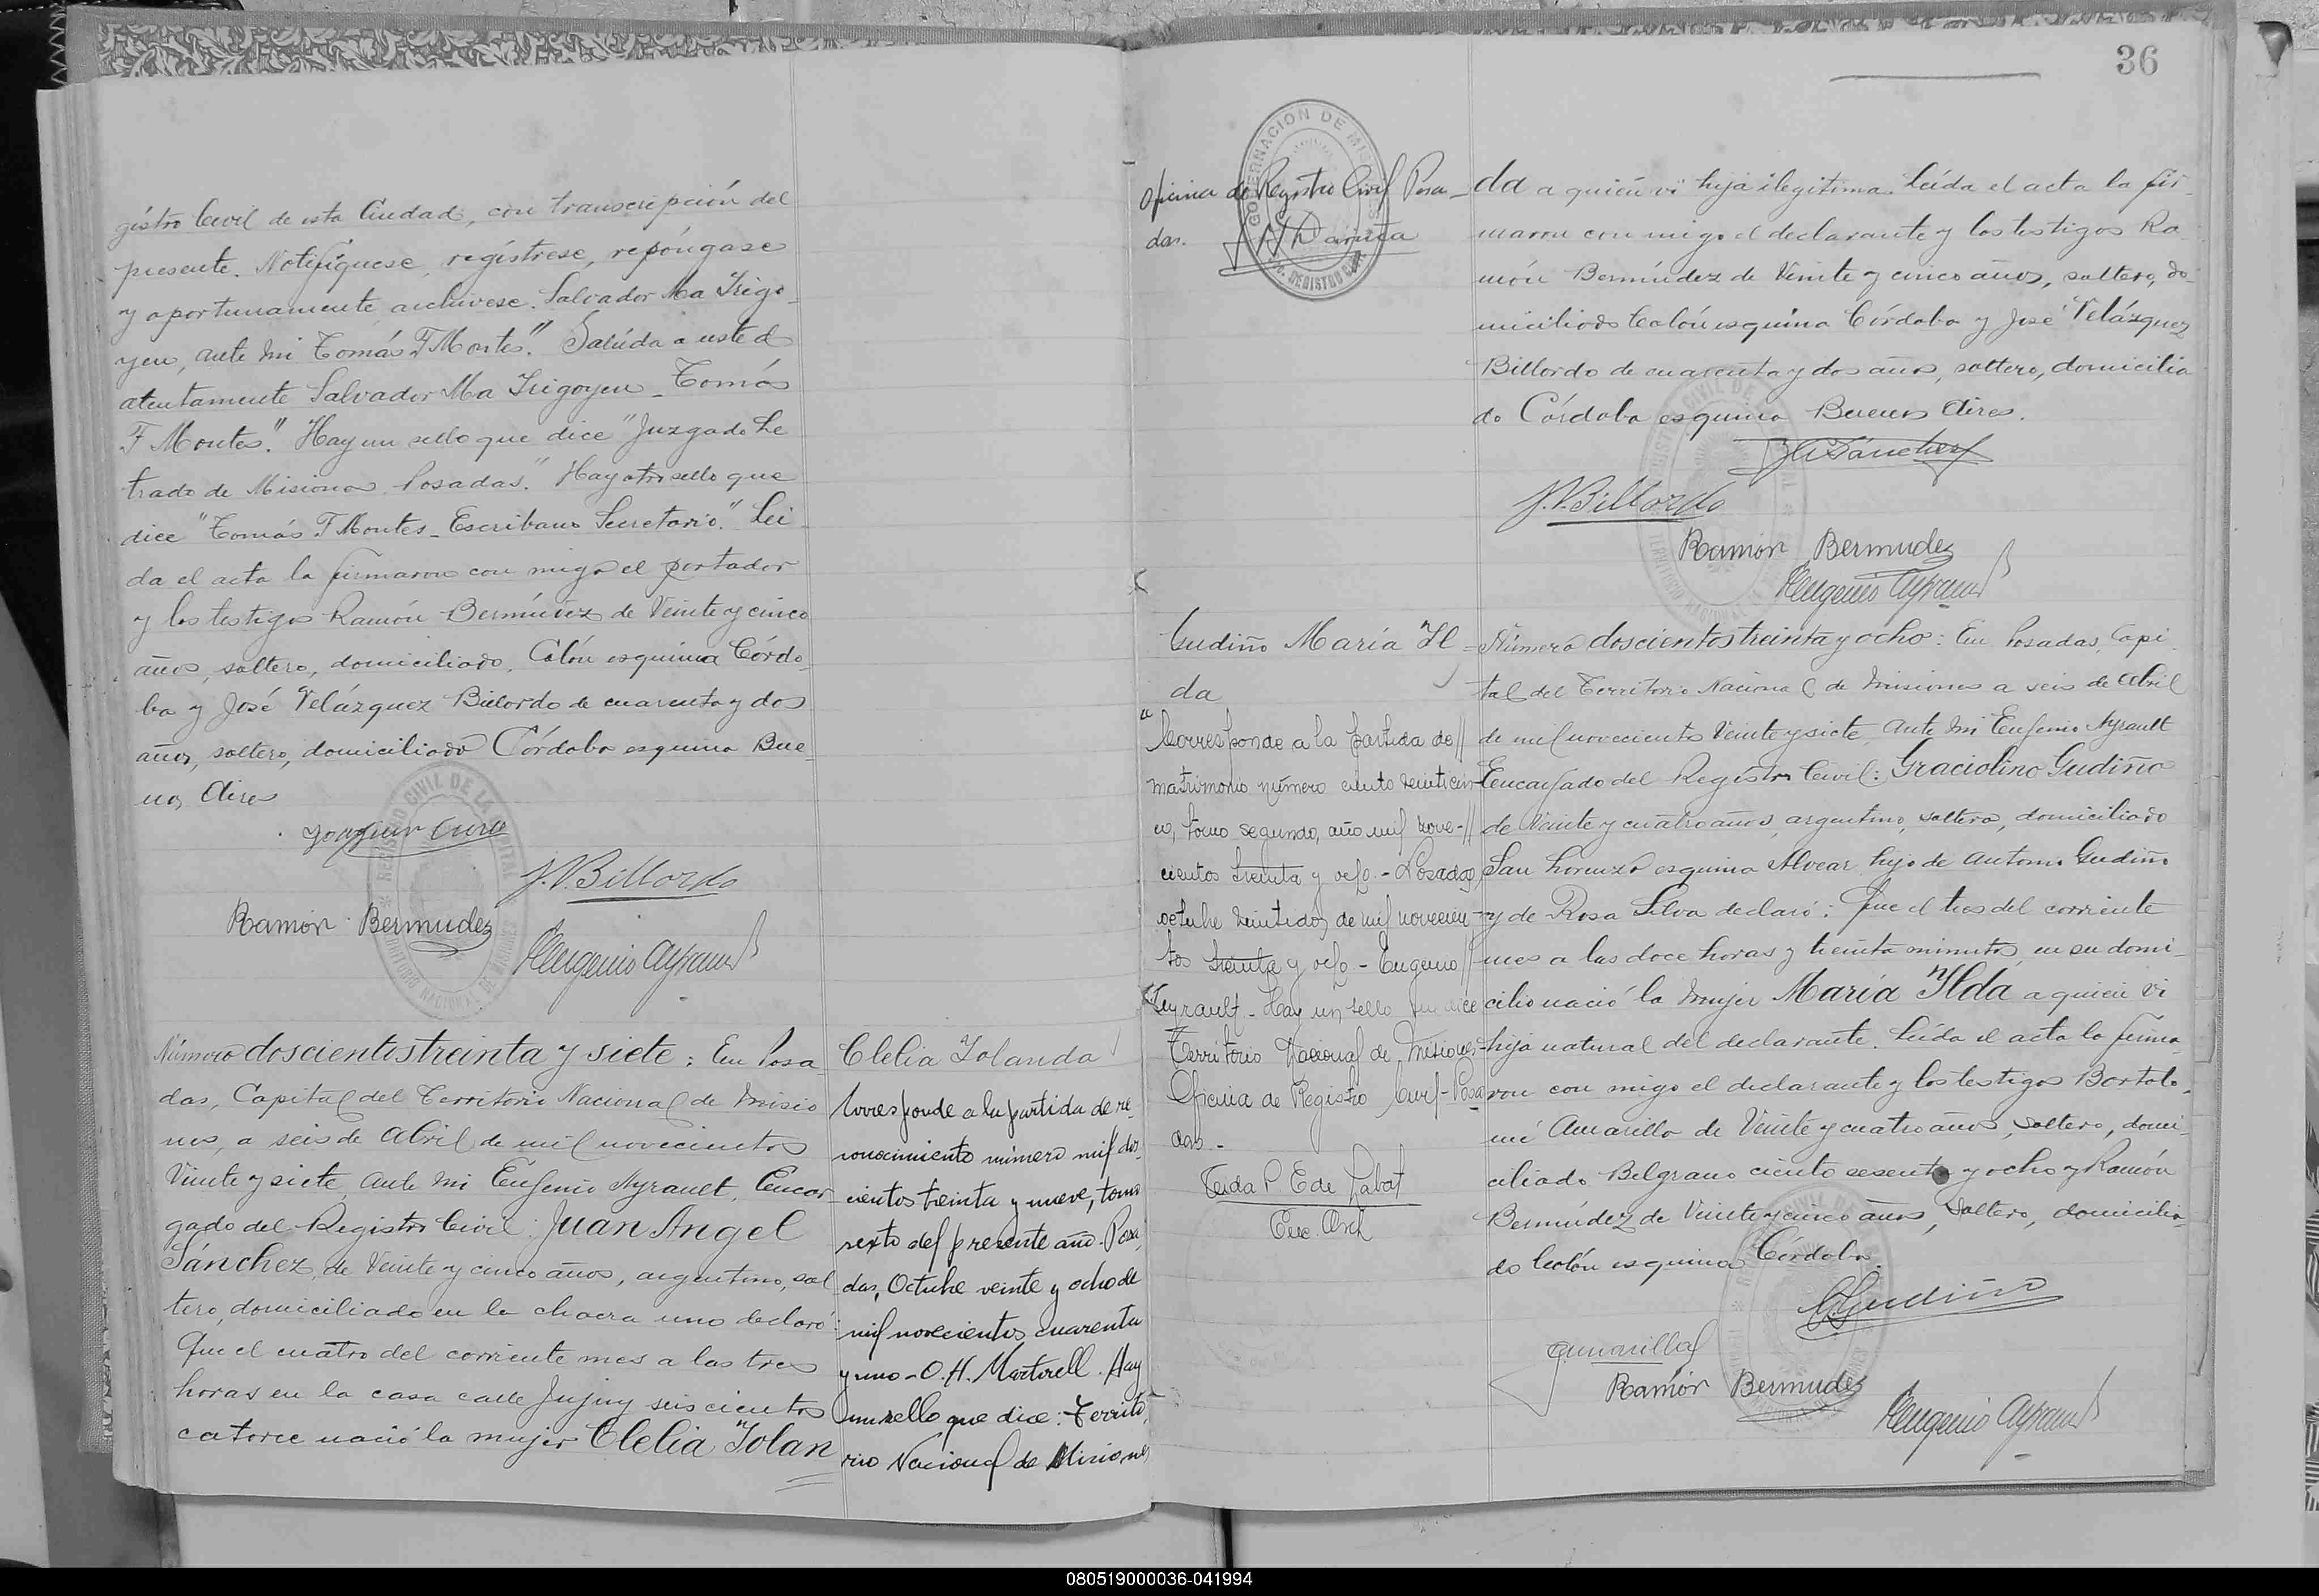 gistro Civil de esta Ciudad, con transcripción del
presente. Notifíquese, regístrese, repóngase
y oportunamente archívese. Salvador Ma Irigo_
yen, ante mi Tomás F Montes." Salúda a usted
atentamente Salvador Ma Irigoyen _ Tomás
F Montes." Hay un sello que dice "Juzgado Le
trado de Misiones. Posadas." Hay otro sello que
dice "Tomás F Montes _ Escribano Secretario." Lei_
da el acta la firmaron con migo el portador
y los testigos Ramón Bermúdez de Veinte y cinco
años, soltero, domiciliado, Colón esquina Córdo_
ba y José Velázquez Billordo de cuarenta y dos
años, soltero, domiciliado Córdoba esquina Bue_
nos Aires
J.V. Billordo
Ramón Bermudez
Eugenio Ayrault
REGISTRO CIVIL DE LA CAPITAL
TERRITORIO NACIONAL DE MISIONES
Número doscientos treinta y siete: En Posa_
das, Capital del Territorio Nacional de Misio
nes, a seis de Abril de mil novecientos
Veinte y siete, ante mi Eugenio Ayrault, Encar_
gado del Registro Civil: Juan Angel
Sánchez, de Veinte y cinco años, argentino, sol
tero, domiciliado en la chacra uno declaró:
Que el cuatro del corriente mes a las tres
horas en la casa calle Jujuy seiscientos
catorce nació la mujer Clelia Yolan
Clelia Yolanda
Corresponde a la partida de re_
conocimiento número mil dos_
cientos treinta y nueve, tomo
sexto del presente año. Posa_
das, Octubre veinte y ocho de
mil novecientos cuarenta
y uno - O. H. Martorell. Hay
un sello que dice: Territo_
rio Nacional de Misiones
36
Oficina de Registro Civil Posa_
das.
GOBERNACION DE MISIONES
REGISTRO CIVIL
da a quien vi hija ilegitima. Leída el acta la fir_
maron con migo el declarante y los testigos Ra_
món Bermúdez de Veinte y cinco años, soltero, do_
miciliado Colón esquina Córdoba y José Velázquez
Billordo de cuarenta y dos años, soltero, domicilia
do Córdoba esquina Buenos Aires.
J A Sánchez
J.V. Billordo
Ramón Bermudez
Eugenio Ayrault
Gudiño María Il_
da
"Corresponde a la partida de//
matrimonio número ciento veinticin_
co, tomo segundo, año mil nove-//
cientos treinta y ocho. - Posadas,
octubre veintidos de mil novecien_
tos treinta y ocho - Eugenio//
Ayrault - Hay un sello que dice
Territorio Nacional de Misiones-
Oficina de Registro Civil - Posa
das -
Enc. Arch
Número doscientos treinta y ocho: En Posadas, Capi_
tal del Territorio Nacional de Misiones a seis de Abril
de mil novecientos Veinte y siete, ante mi Eugenio Ayrault
Encargado del Registro Civil: Graciolino Gudiño
de Veinte y cuatro años, argentino, soltero, domiciliado
San Lorenzo esquina Alvear, hijo de Antonio Gudiño
y de Rosa Silva declaró: Que el tres del corriente
mes a las doce horas y treinta minutos, en su domi_
cilio nació la mujer María Ilda a quien vi
hija natural del declarante. Leída el acta la firma_
ron con migo el declarante y los testigos Bartolo_
mé Amarilla de Veinte y cuatro años, soltero, domi_
ciliado Belgrano ciento sesenta y ocho y Ramón
Bermúdez de Veinte y cinco años, soltero, domicilia_
do Colón esquina Córdoba.
G. Gudiño
Amarilla
Ramón Bermudez
Eugenio Ayrault
080519000036-041994